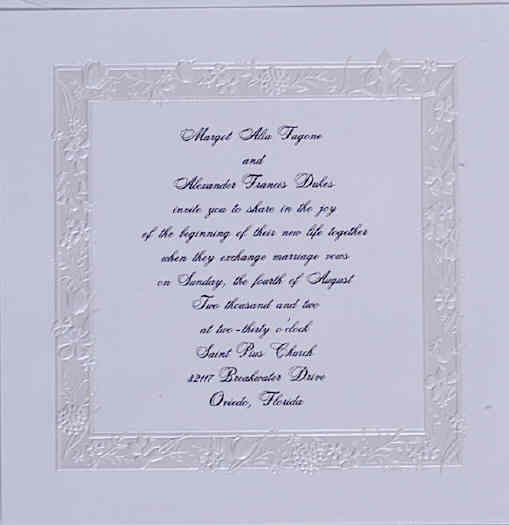 Margot Alia Fagone
and
Alexander Frances Dukes
invite you to share in the joy
of the beginning of their new life together
when they exchange marriage vows
on Sunday, the fourth of August
Two thousand and two
at two-thirty o'clock
Saint Pius Church
42117 Breakwater Drive
Oviedo, Florida